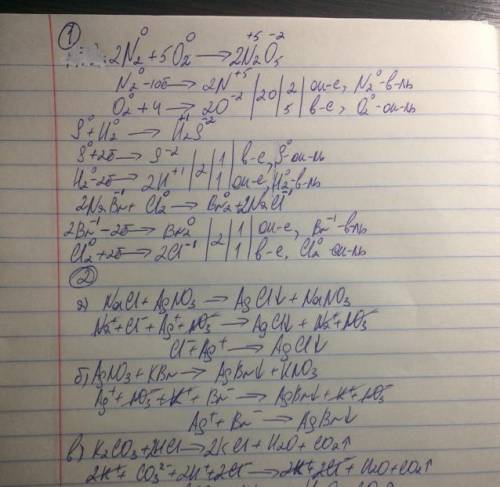 ①
2N₂⁰ + 5O₂⁰ → 2N₂⁺⁵O₅⁻²
N₂⁰ - 10ē → 2N⁺⁵ | 20 | 2 | ок-е, N₂⁰ - в-ль
O₂⁰ + 4 → 2O⁻² | | 5 | в-е, O₂⁰ - ок-ль
S⁰ + H₂⁰ → H₂⁺¹S⁻²
S⁰ + 2ē → S⁻² | 2 | 1 | в-е, S⁰ - ок-ль
H₂⁰ - 2ē → 2H⁺¹ | | 1 | ок-е, H₂⁰ - в-ль
2NaBr⁻¹ + Cl₂⁰ → Br₂⁰ + 2NaCl⁻¹
2Br⁻¹ - 2ē → Br₂⁰ | 2 | 1 | ок-е, Br⁻¹ - в-ль
Cl₂⁰ + 2ē → 2Cl⁻¹ | | 1 | в-е, Cl₂⁰ ок-ль
②
а) NaCl + AgNO₃ → AgCl↓ + NaNO₃
Na⁺ + Cl⁻ + Ag⁺ + NO₃⁻ → AgCl↓ + Na⁺ + NO₃⁻
Cl⁻ + Ag⁺ → AgCl↓
б) AgNO₃ + KBr → AgBr↓ + KNO₃
Ag⁺ + NO₃⁻ + K⁺ + Br⁻ → AgBr↓ + K⁺ + NO₃⁻
Ag⁺ + Br⁻ → AgBr↓
в) K₂CO₃ + 2HCl → 2KCl + H₂O + CO₂↑
2K⁺ + CO₃²⁻ + 2H⁺ + 2Cl⁻ → 2K⁺ + 2Cl⁻ + H₂O + CO₂↑